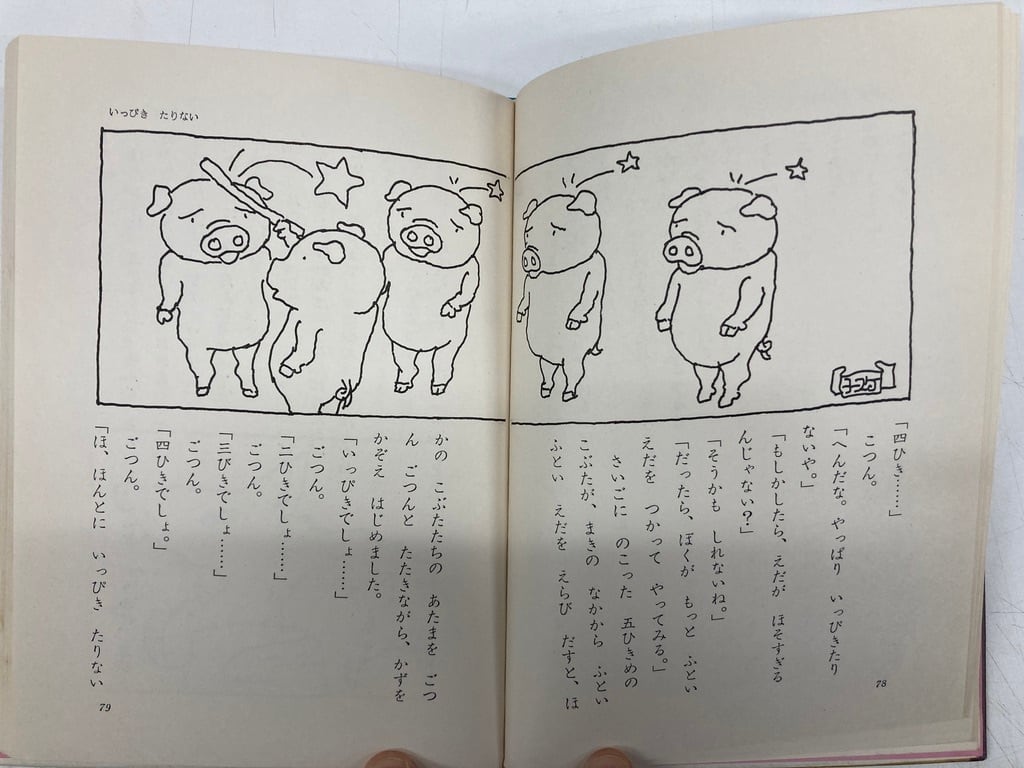 「四ひき……」
ごつん。
「へんだな。やっぱり いっぴきたり
ないや。」
「もしかしたら、えだが ほそすぎる
んじゃない?」
「そうかも しれないね。」
「だったら、ぼくが もっと ふとい
えだを つかって やってみる。」
さいごに のこった 五ひきめの
こぶたが、まきの なかから ふとい
ふとい えだを えらび だすと、ほ
78
いっぴき たりない
かの こぶたたちの あたまを ごつ
ん ごつんと たたきながら、かずを
かぞえ はじめました。
「いっぴきでしょ……」
ごつん。
「二ひきでしょ……」
ごつん。
「三びきでしょ……」
ごつん。
「四ひきでしょ。」
ごつん。
「ほ、ほんとに いっぴき たりない
79